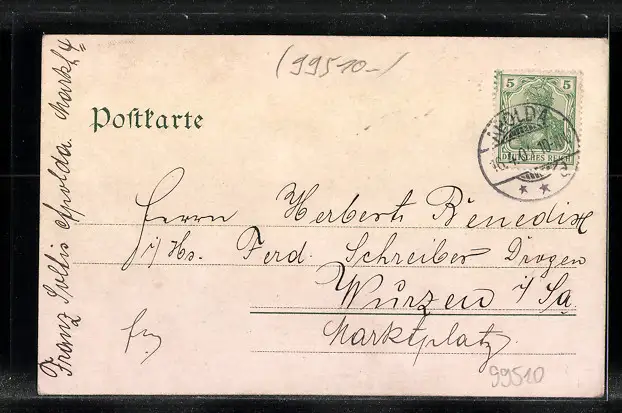 (99510.-)
5 5
DEUTSCHES REICH
APOLDA
Postkarte
Herrn Herbert Benedix
i/Hs. Ferd. Schreiber Drogen
Wurzen i/Sa.
Marktplatz
99510
Franz Apolda. Markt 4